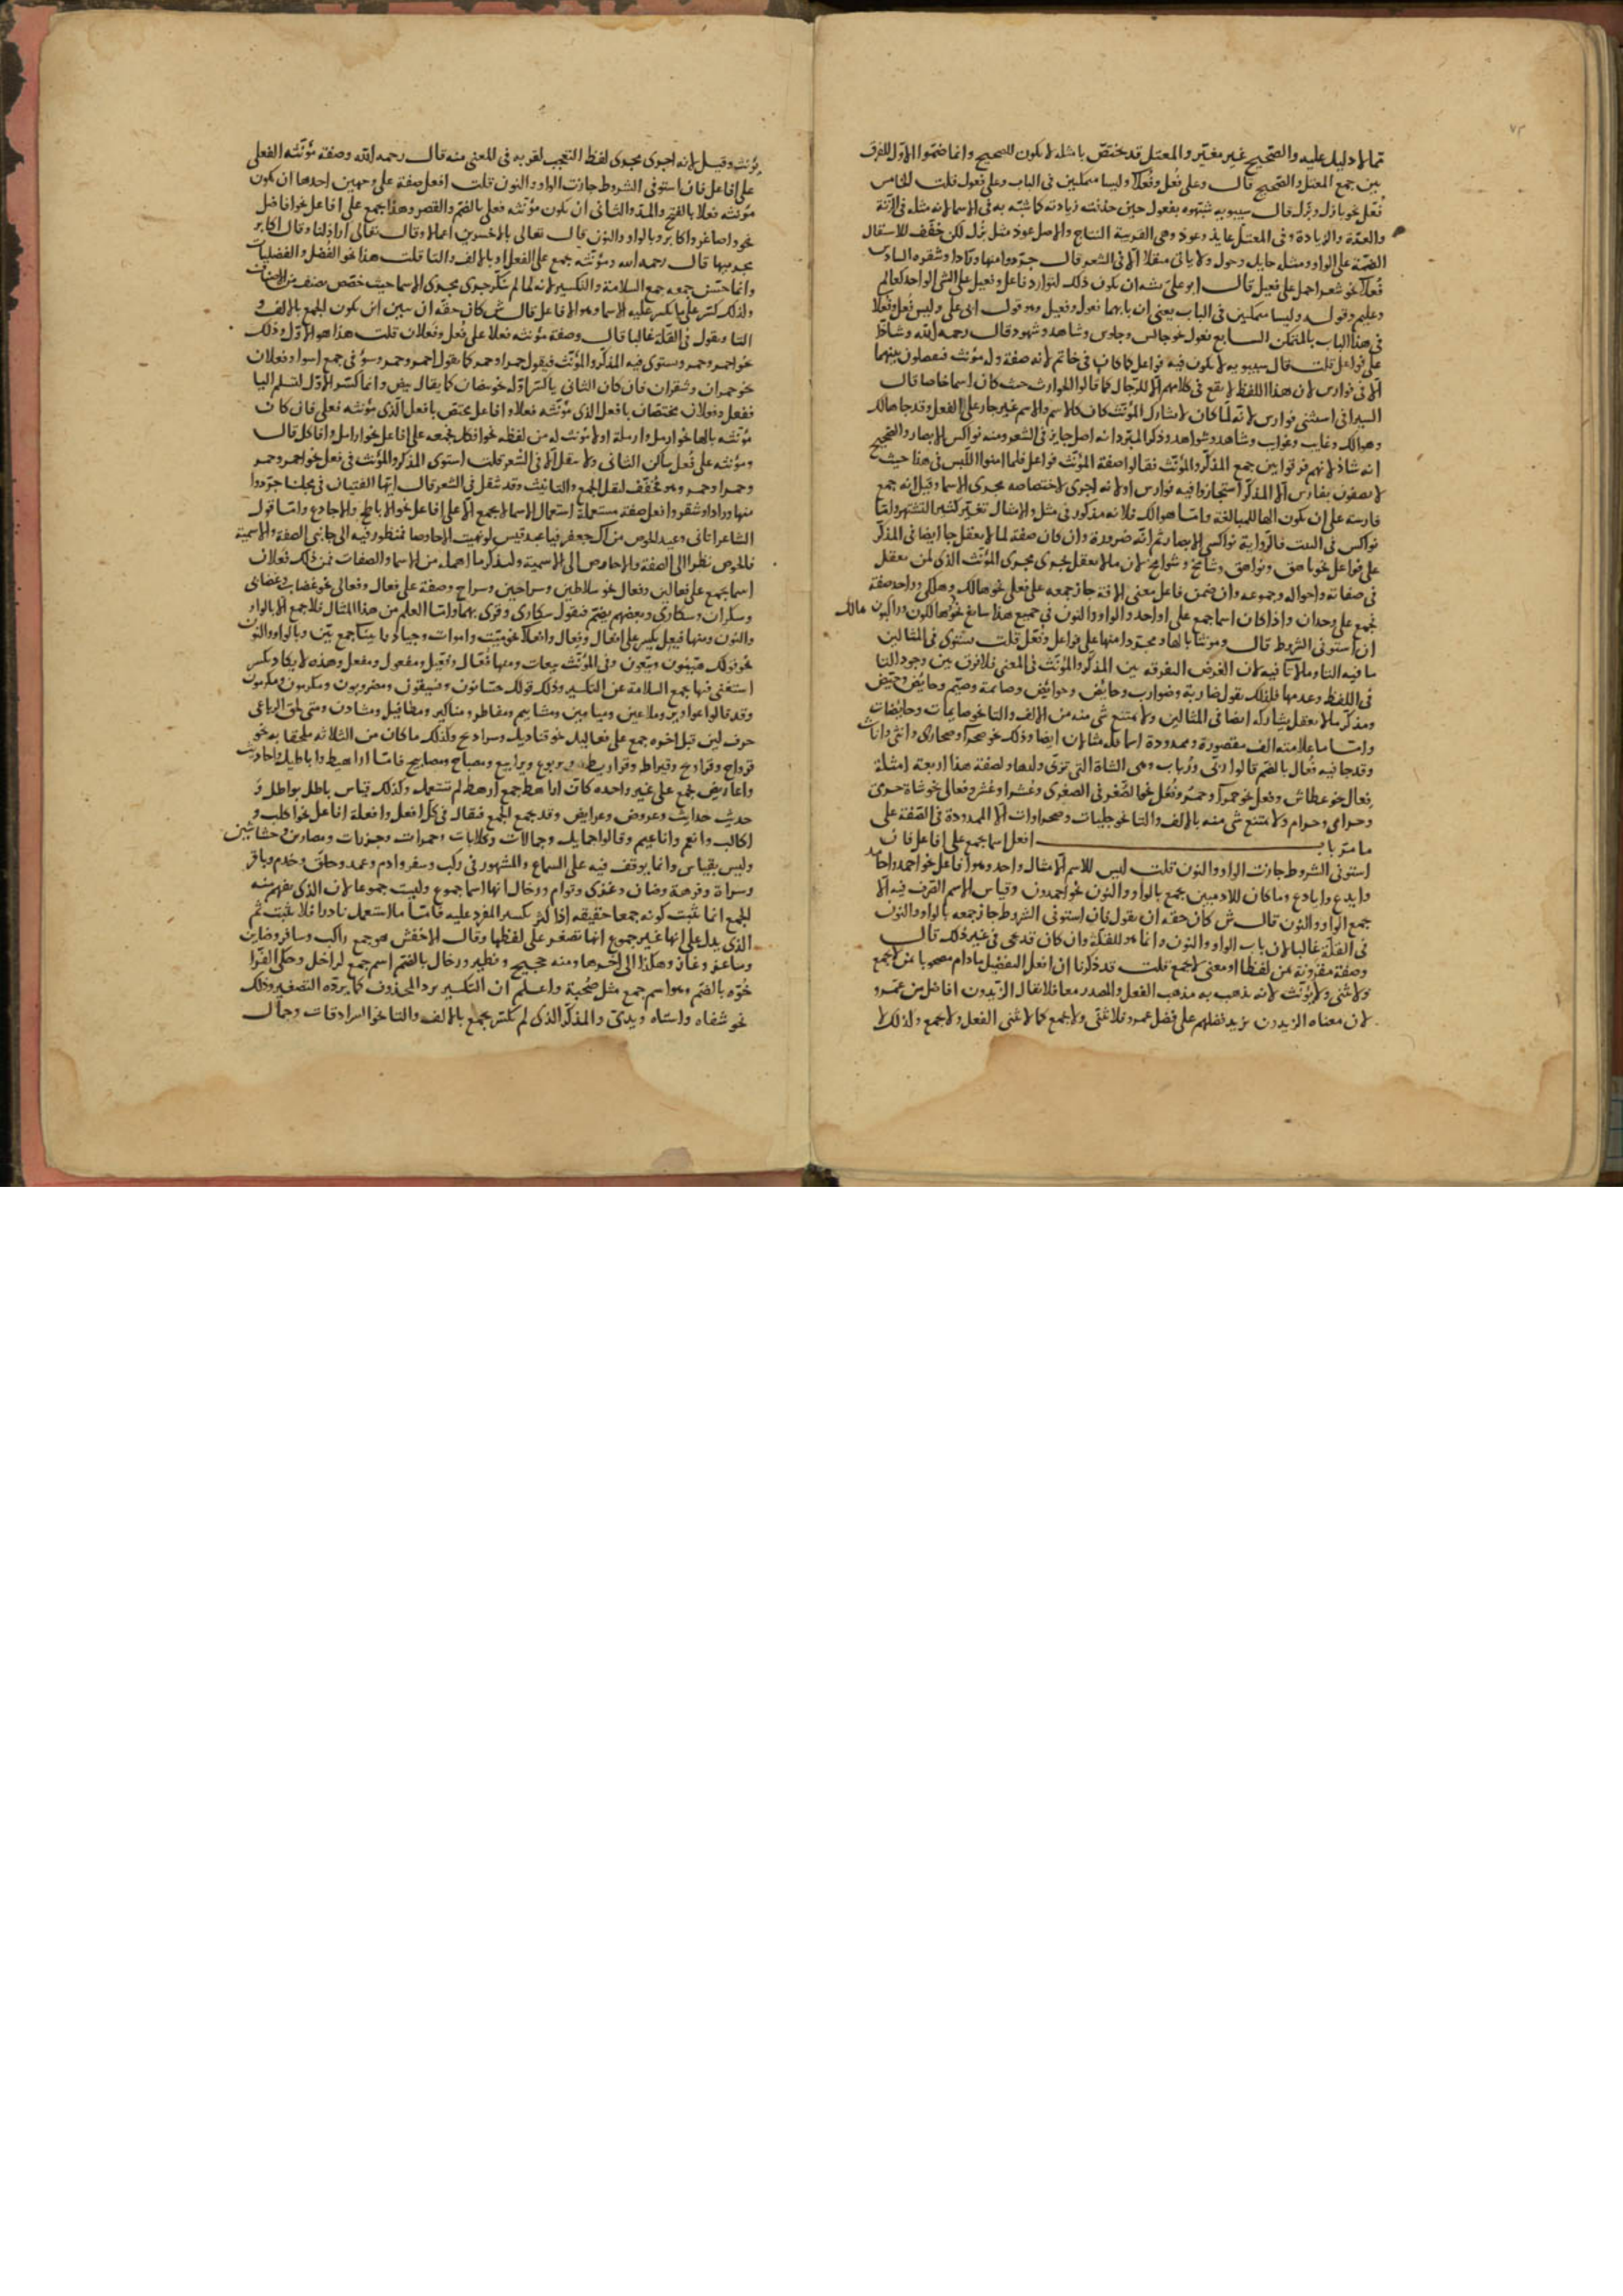 مما لا دليل عليه والصحيح غير مغيّر والمعتل قد يختصّ بامثله لا يكون للصحيح وانما ضمّوا الاوّل للفرق
بين جمع المعتل والصحيح قال وعلى فُعل وفُعلا وليسا متمكنين فى الباب وعلى فعول قلت الخامس
فُعْل نحو بازل وبُزل قال سيبويه شبّهوه بفعول حين حذفت زيادته كما شبّه به فى الاسما لانه مثله فى الزنة
والعدّة والزيادة وفى المعتلّ عايذ وعوذ وهى القريبة النتاج والاصل عوذ مثل بُزل لكن خفّف للاستثقال
الضمّة على الواو ومثله حايل وحول ولا ياتى مثقلا الا فى الشعر قال جرّدوا منها ورّادا وشقر السادس
فُعلا نحو شعرا حمل على فعيل قال ابو على يشبه ان يكون ذلك لتوارد فاعل وفعيل على الشى الواحد كعالم
وعليم وقوله وليسا متمكنين فى الباب يعنى ان بابهما فعول وفعيل وهو قول ابى على وليس فُعل وفُعلا
فى هذا الباب بالمتمكن السابع فعول نحو جالس وجلوس وشاهد وشهود قال رحمه الله وشاذّ
على فواعل قلت قال سيبويه لا يكون فيه فواعل كما كان فى خاتم لانه صفة وله مؤنث فيفصلون بينهما
الا فى فوارس لان هذا اللفظ لا يقع فى كلامهم الا للرجال كما قالوا الحوارث حيث كان اسما خاصا قال
السيرافى استثنى فوارس لانّه لمّا كان لا يشارك المؤنث كان كالاسم والاسم غير جار على الفعل وقد جا هالك
وهوالك وغايب وغوايب وشاهد وشواهد وذكر المبرّد انه اصل جايز فى الشعر ومنه نواكس الابصار والصحيح
انه شاذ لانهم فرقوا بين جمع المذكّر والمؤنّث فقالوا صفة المؤنّث فواعل فلما امنوا اللبس فى هذا حيث
لا يصفون بفارس الا المذكّر استجازوا فيه فوارس او لانه اجرى لاختصاصه مجرى الاسما وقيل انه جمع
فارسة على ان يكون الها للمبالغة وامّا هوالك فلانه مذكور فى مثل والامثال تغيّر كثيرا لتشتهر وامّا
نواكس فى البيت فالرواية نواكسى الابصار ثم انّه ضرورة وان كان صفة لما لا يعقل جا ايضا فى المذكّر
على فواعل نحو ناهق ونواهق وشامخ وشوامخ لان ما لا يعقل يجرى مجرى المؤنّث الذى لمن يعقل
فى صفاته واحواله وجموعه وان ضمن فاعل معنى الافة جاز جمعه على فعلى نحو هالك وهلكى وواحد صفة
يجمع على وحدان واذا كان اسما جمع على اواحد والواو والنون فى جميع هذا سايغ نحو هالكون وراكبون مالك
ان استوفى الشروط قال ومؤنثا بالها ومجرّدا منها على فواعل وفُعّل قلت يستوى فى المثالين
ما فيه التا وما لا تا فيه لان الغرض التفرقه بين المذكّر والمؤنّث فى المعنى فلا فرق بين وجود التا
فى اللفظ وعدمها فلذلك يقول ضاربة وضوارب وحايض وحوايض وصايمة وصيّم وحايض وحيّض
ومذكّر ما لا يعقل يشاركه ايضا فى المثالين ولا يمتنع شى منه من الالف والتا نحو صايمات وحايضات
وامّا ما علامته الف مقصورة وممدودة اسما فله مثالان ايضا وذلك نحو صحرا وصحارى وانثى واناث
وقد جا فيه فُعال بالضم قالوا رُبّى ورُباب وهى الشاة التى تربّى ولدها ولصفة هذا اربعة امثلة
فعال نحو عطاش وفعل نحو حمرا وحمر وفُعَل نحو الصُّغر فى الصغرى وعُشرا وعُشر وفعالى نحو شاة حرمى
وحرامى وحرام ولا يمتنع شى منه بالالف والتا نحو حبليات وصحراوات الا الممدودة فى الصّفة على
ما مرّ باب افعل اسما يجمع على افاعل فان
استوفى الشروط جازت الواو والنون قلت ليس للاسم الا مثال واحد وهو افاعل نحو احمد واحامد
وايدع وايادع وما كان للادميين يجمع بالواو والنون نحو احمدون وقياس الاسم الصّرف فيه الا
جمع الواو والنون قال ش كان حقه ان يقول فان استوفى الشروط جاز جمعه بالواو والنون
فى القلّة غالبا لان باب الواو والنون وانما هو للقلّة وان كان قد يجى فى غير ذلك قال
وصفة مقرونة بمن لفظا او معنى لا يجمع قلت قد ذكرنا ان افعل التفضيل ما دام مصحوبا بمن لا يجمع
ولا يثنى ولا يؤنّث لانه يذهب به مذهب الفعل والمصدر معا فلا يقال الزيدون افاضل من عمرو
لان معناه الزيدون يزيد فضلهم على فضل عمرو فلا يثنّى ولا يجمع كما لا يثنى الفعل ولا يجمع ولذلك لا
يؤنث وقيل لانه اجرى مجرى لفظ التعجب لقربه فى المعنى منه قال رحمه الله وصفة مؤنّثه الفعلى
على افاعل فان استوفى الشروط جازت الواو والنون قلت افعل صفة على وجهين احدها ان يكون
مؤنثه فعلا بالفتح والمدّ والثانى ان يكون مؤنثه فعلى بالضّم والقصر وهذا يجمع على افاعل نحو افاضل
نحو واصاغر واكابر وبالواو والنون قال تعالى بالاخسرين اعمالا وقال تعالى اراذلنا وقال اكابر
مجرميها قال رحمه الله ومؤنّثه يجمع على الفعل او بالالف والتا قلت هذا نحو الفُضل والفضليات
وانما حسن جمعه جمع السلامة والتكسير لانه لما لم ينكّر جرى مجرى الاسما حيث خصّص بصنف من الاصناف
ولذلك كسّر على ما يكسر عليه الاسما وهو الافاعل قال ش كان حقّه ان يبين ان يكون الجمع بالالف و
التا ويقول فى القلّة غالبا قال وصفة مؤنثه فعلا على فُعل وفعلان قلت هذا هو الاوّل وذلك
نحو احمر وحمر ويستوى فيه المذكّر والمؤنّث فيقول حمرا وحمر كما يقول احمر وحمر وسوّ فى جمع اسوا وفعلان
نحو حمران وشقران فان كان الثانى يا كسر اوّله نحو بيضان كما يقال بيض وانما كسّر الاوّل لتسلم اليا
ففعل وفعلان مختصّان بافعل الذى مؤنّثه فعلا وافاعل يختص بافعل الّذى مؤنثه فعلى فان كان
مؤنّثه بالها نحو ارمل وارملة اولا مؤنث له من لفظه نحو افكل يجمعه على افاعل نحو ارامل وافاكل قال
ومؤنثه على فُعل ساكن الثانى ولا يثقل الا فى الشعر قلت استوى المذكّر والمؤنث فى فعل نحو احمر وحمر
وحمرا وحمر وهو مخفّف لثقل الجمع والتانيث وقد ثقل فى الشعر قال ايّها الفتيان فى مجلسنا جرّدوا
منها ورادا وشقر وافعل صفة مستعملة استعمال الاسما لا يجمع الا على افاعل نحو الاباطح والاجادع وامّا قول
الشاعر اتانى وعيد الحوص من آل جعفر فيا عبد قيس لو نهيت الاحاوصا فمنظور فيه الى جانبى الصفة والاسمية
فالحوص نظرا الى الصفة والاحاوص الى الاسمية ولنذكر ما اهمله من الاسما والصفات فمن ذلك فعلان
اسما يجمع على فعالين وفعال نحو سلاطين وسراحين وسراح وصفة على فعال وفعالى نحو غضاب وغضابى
وسكران وسكارى وبعضهم يضمّ فيقول سكارى وقرى بهما وامّا العلم من هذا المثال فلا جمع الا بالواو
والنون ومنها فيعل يكسر على افعال وفعال وافعلا نحو ميّت واموات وجياد وابينا جمع بيّن وبالواو والنون
نحو قولك هيّنون وبيّعون وفى المؤنّث بيعات ومنها فُعّال وفعّيل ومفعول ومفعل وهذه لا يكاد يكسر
استغنى فيها بجمع السلامة عن التكسير وذلك قولك حسّانون وفسّيقون ومضروبون ومكرمون ومكرمون
وقد قالوا عواوير وملاعين وميامين ومشاييم ومفاطر ومناكير ومطافيل ومشادن ومتى لحق الرباعى
حرف لين قبل اخره جمع على فعاليل نحو قناديل وسراديح وكذلك ما كان من الثلاثه ملحقا به نحو
قرواح وقراويح وقيراط وقراريط ويربوع ويرابيع ومصباح ومصابيح فامّا اراهيط واباطيل واحاديث
واعاريض يجمع على غير واحده كان اراهط جمع ارهط لم تستعمل وكذلك قياس باطل بواطل و
حديث حدايث وعروض وعرايض وقد يجمع الجمع فقاله فى كلّ افعل وافعلة افاعل نحو اكلب و
اكالب وانعم واناعيم وقالوا جمايل وجمالات وكلابات وحمرات وجزرات ومصارين وحشاشين
وليس بقياس وانما يوقف فيه على السماع والمشهور فى ركب وسفر وادم وعمد وحلق وخدم وباقر
وسراة وفرهة وضان وغزى وتوام ورخال انها اسما جموع وليست جموعا لان الذى يفهم منه
الجمع انما يثبت كونه جمعا حقيقه اذا كثر تكسير المفرد عليه فامّا ما لا استعمل نادرا فلا يثبت ثم
الذى يدل على انها غير جموع انها تصغر على لفظها وقال الاخفش هو جمع راكب وسافر وضاين
وماعز وغاز وهكذا الى اخرها ومنه حجيج ونظير ورخال بالضّم اسم جمع لراخل وحكى الفرّا
خوّه بالضّم وهو اسم جمع مثل صُحبة واعلم ان التكسير يردّ المحذوف كما يردّه التصغير وذلك
نحو شفاه واستاه ويدىّ والمذكّر الذى لم يكسّر يجمع بالالف والتا نحو السرادقات وجمال